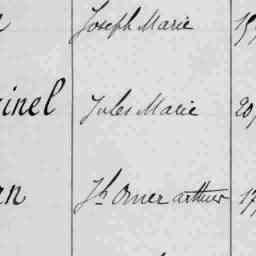 Joseph Marie 19
inel Jules Marie 20
an Jh Omer arthur 17